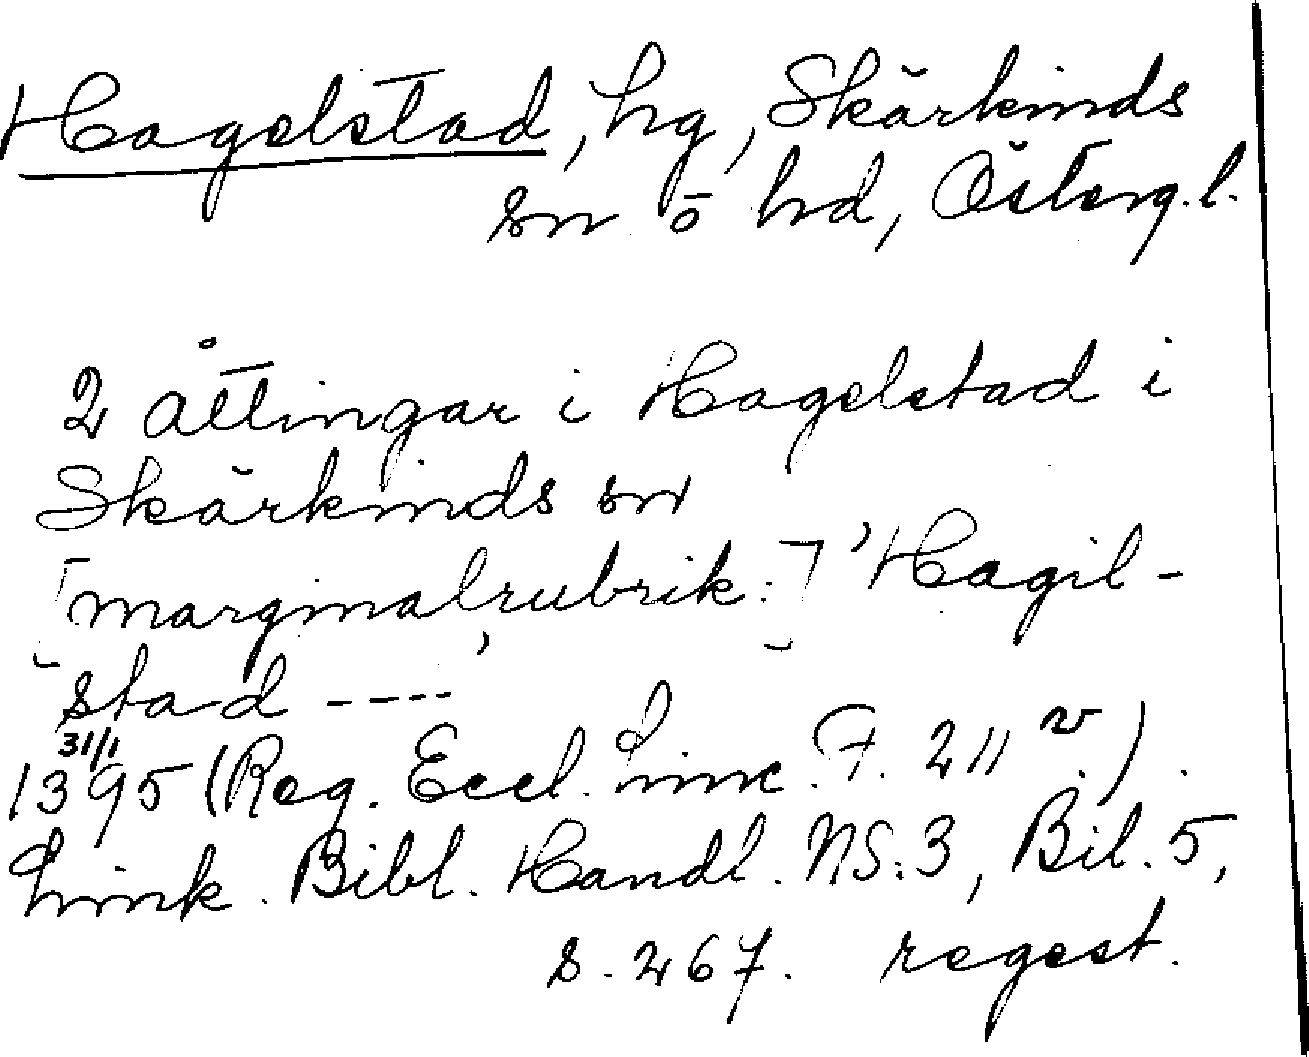 Hagelstad, hg, Skärkinds
sn o hd, Österg.l.
2 åttingar i Hagelstad i
Skärkinds sn
[marginalrubrik:] 'Hagil-
stad ----'
31/1
1395 (Reg. Eccl. Linc. F. 211 v.).
Link. Bibl. Handl. NS:3, Bil. 5,
s. 267. regest.